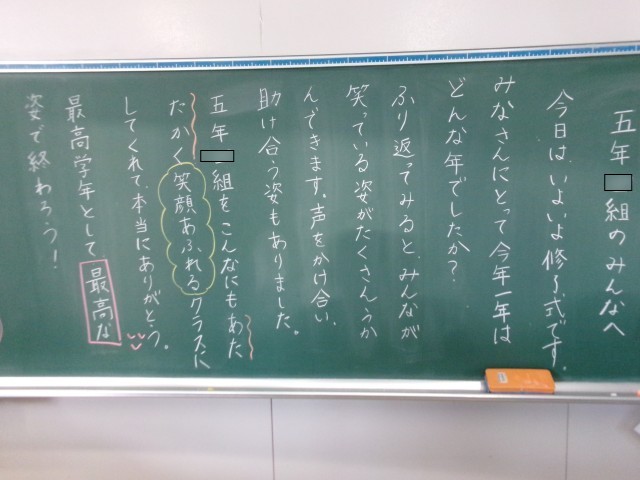 五年 組のみんなへ
今日は、いよいよ修了式です。
みなさんにとって今年一年は
どんな年でしたか？
ふり返ってみると、みんなが
笑っている姿がたくさんうか
んできます。声をかけ合い、
助け合う姿もありました。
五年 組をこんなにもあた
たかく笑顔あふれるクラスに
してくれて、本当にありがとう。
最高学年として、最高な
姿で終わろう！